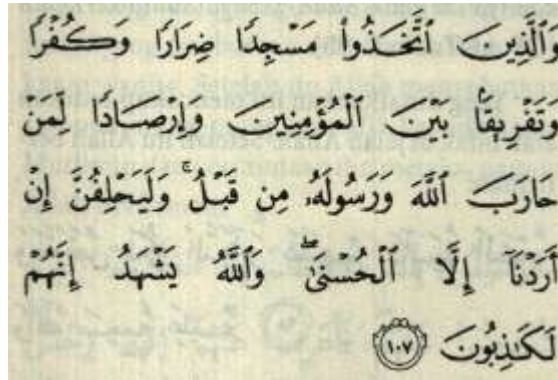 وَٱلَّذِينَ ٱتَّخَذُوا۟ مَسْجِدًا ضِرَارًا وَكُفْرًا
وَتَفْرِيقًۢا بَيْنَ ٱلْمُؤْمِنِينَ وَإِرْصَادًا لِّمَنْ
حَارَبَ ٱللَّهَ وَرَسُولَهُۥ مِن قَبْلُ ۚ وَلَيَحْلِفُنَّ إِنْ
أَرَدْنَآ إِلَّا ٱلْحُسْنَىٰ ۖ وَٱللَّهُ يَشْهَدُ إِنَّهُمْ
لَكَـٰذِبُونَ ١٠٧